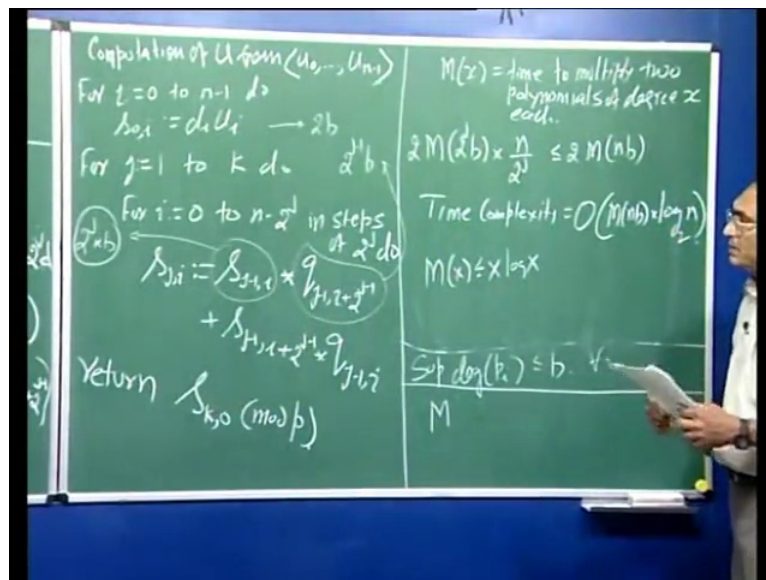 Computation of U from (u₀,..., uₙ₋₁)
For i=0 to n-1 do
s₀,ᵢ := dᵢuᵢ → 2b
For j=1 to k do 2ʲ⁻¹b
For i:=0 to n-2ʲ in steps
of 2ʲ do
2ʲ×b
sⱼ,ᵢ := sⱼ₋₁,ᵢ * qⱼ₋₁,ᵢ₊₂ʲ⁻¹
+ sⱼ₋₁,ᵢ₊₂ʲ⁻¹ * qⱼ₋₁,ᵢ
return sₖ,₀ (mod p)
M(x) = time to multiply two
polynomials of degree x
each.
2M(2ʲb) × n/2ʲ ≤ 2M(nb)
Time Complexity = O(M(nb) × log₂n)
M(x) ≤ x log x
Sup deg(pᵢ) ≤ b.
M